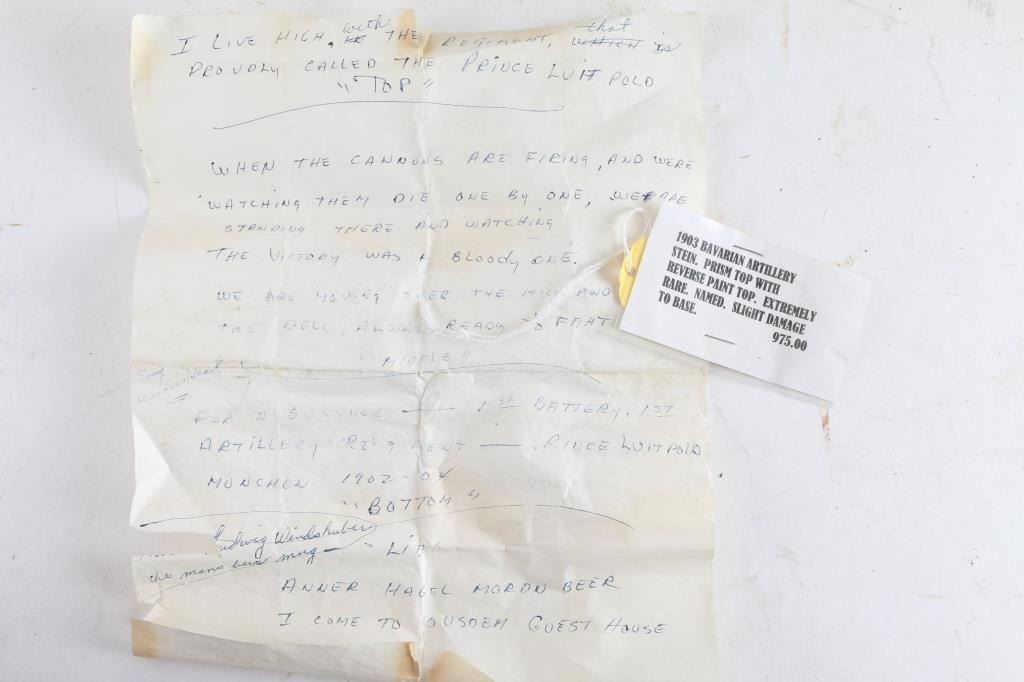 I LIVE HIGH, with THE REGIMENT, that is
PROUDLY CALLED THE PRINCE LUIT POLD
"TOP"
WHEN THE CANNONS ARE FIRING, AND WERE
WATCHING THEM DIE ONE BY ONE, WE ARE
STANDING THERE AND WATCHING
THE VICTORY WAS A BLOODY ONE.
WE ARE MOVING OVER THE HILL AND
THE DELL, ALWAYS READY TO FAHT
"MIDDLE"
FOR 2 1ST BATTERY, 1ST
ARTILLERY REGIMENT — PRINCE LUITPOLD
MUNCHEN 1902-04
"BOTTOM"
Ludwig Windshuber
the mans beer mug — "LI
ANNER HAGEL MORDN BEER
I COME TO OUSDEM GUEST HOUSE
1903 BAVARIAN ARTILLERY
STEIN. PRISM TOP WITH
REVERSE PAINT TOP. EXTREMELY
RARE. NAMED. SLIGHT DAMAGE
TO BASE.
975.00